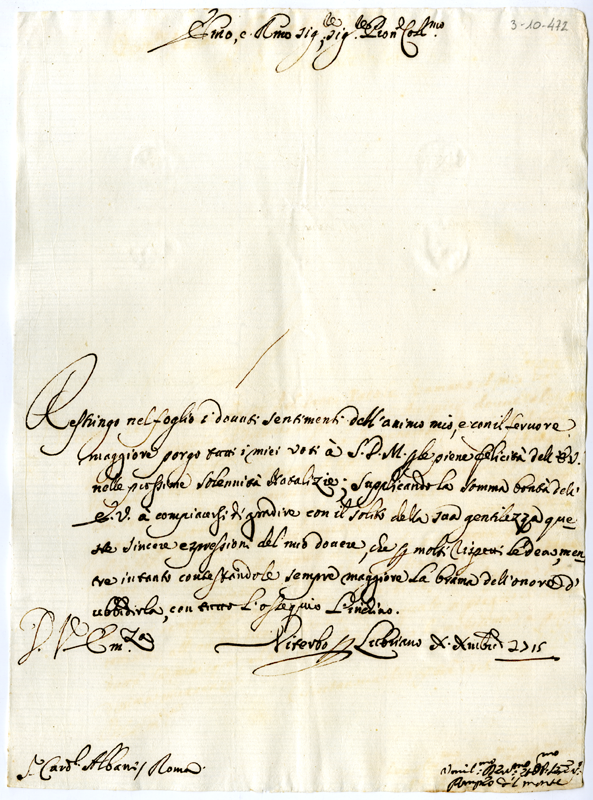 3-10-472
Emo, e Rmo Sig.re Sig.re Pron Col.mo
Restringo nel foglio i dovuti sentimenti dell'animo mio, e con il fervore
maggiore porgo tutti i miei voti à S.D.M. p le piene felicità dell'E.V.
nelle prossime solennità Natalizie; supplicando la somma bontà dell'
E.V. à compiacersi di gradire con il solito della sua gentilezza que
ste sincere expressioni del mio dovere, che p molti rispetti le devo, men
tre intanto contestandole sempre maggiore la brama dell'onore d'
ubbidirla, con tutto l'ossequio l'inchino.
D. V.ra Em.za
Viterbo p Lubriano X. Xmbre 1715
S.r Card.l Albani / Roma
del Monte